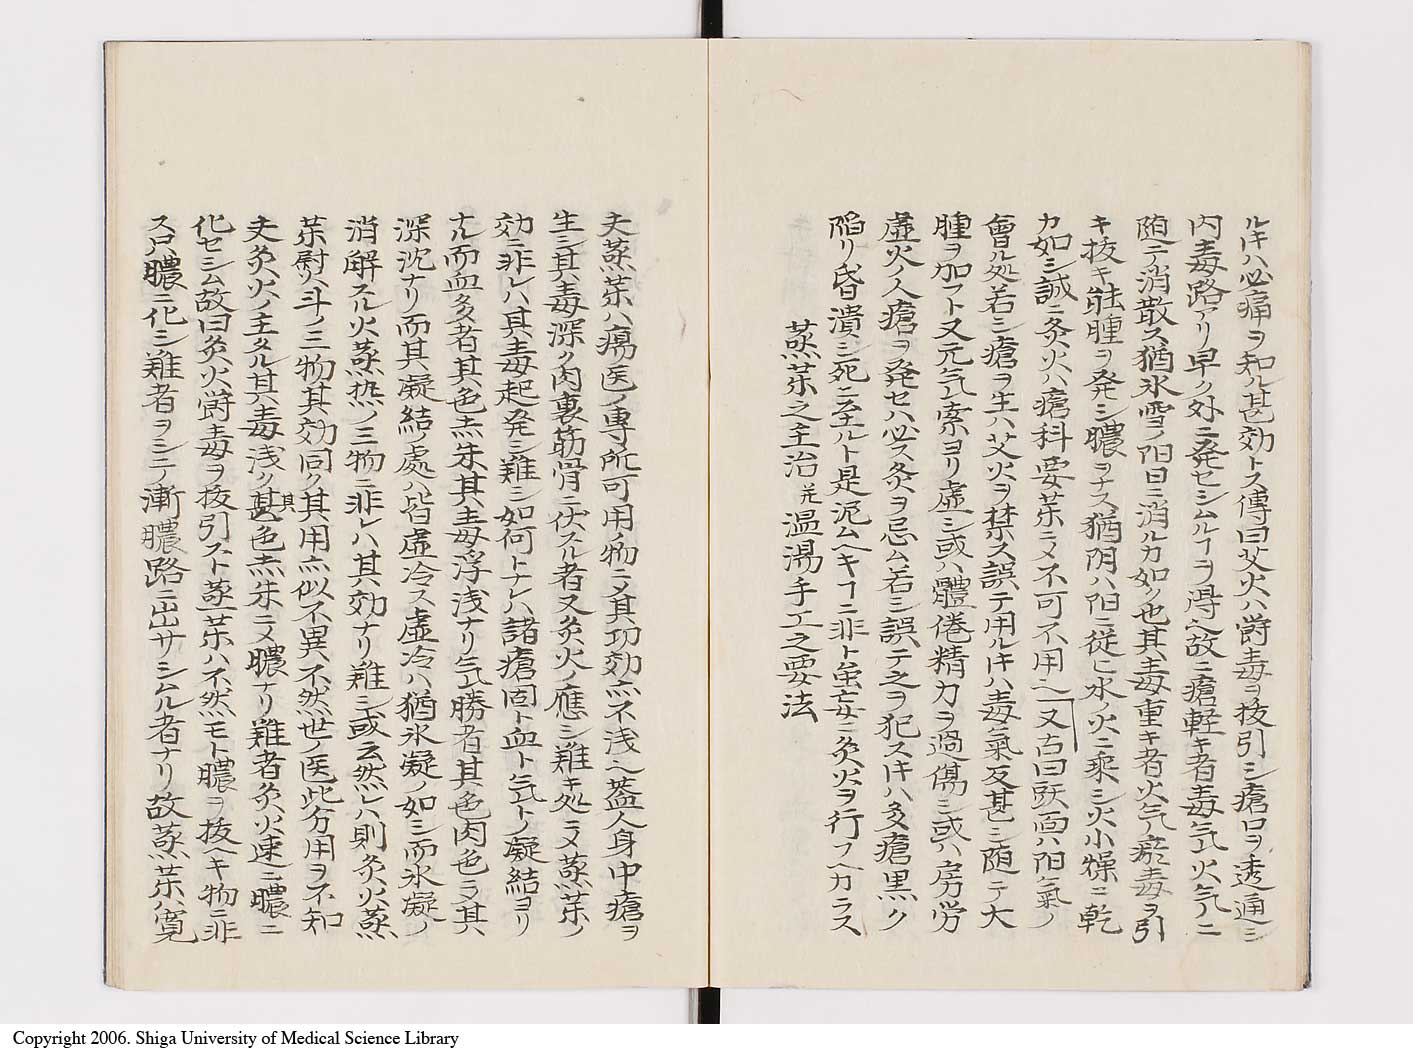 ルキハ必痛ヲ和ル甚効トス傳曰艾火ハ欝毒ヲ抜引シ瘡口ヲ透通シ
内毒路アリ早ク外ニ発セシムルヿヲ得ヘ故ニ瘡軽キ者毒気火気ニ
随テ消散ス猶氷雪ノ陽日ニ消ルカ如ク也其毒重キ者火気瘀毒ヲ引
キ抜キ能腫ヲ発シ膿ヲナス猶陰ハ陽ニ従ヒ水ノ火ニ乗シ火小燥ニ乾
カ如シ誠ニ灸火ハ瘡科要薬ニメ不可不用ヘ又古曰頭面ハ陽氣ノ
會ル処若シ瘡ヲ生ハ艾火ヲ禁ス誤テ用ルキハ毒氣反甚シ随テ大
腫ヲ加フト又元気素ヨリ虚シ或ハ體倦精力ヲ過傷シ或ハ房労
虚火ノ人瘡ヲ発セハ必ス灸ヲ忌ム若シ誤テ之ヲ犯スキハ反瘡黒ク
陥リ昏潰シ死ニ至ルト是泥ムヘキヿニ非ト虽妄ニ灸火ヲ行フヘカラス
蒸薬之主治并温湯手工之要法
夫蒸薬ハ瘍医ノ専所可用ノ物ニメ其功効亦不浅ヘ蓋人身中瘡ヲ
生シ其毒深ク内裏筋骨ニ伏スル者又灸火ノ應シ難キ処ニメ蒸薬ノ
効ニ非レハ其毒起発シ難シ如何トナレハ諸瘡固ト血ト気トノ凝結ヨリ
ナル而血多者其色赤朱其毒浮浅ナリ気勝者其色肉色ニメ其
深沈ナリ而其凝結ノ處ハ皆虚冷ス虚冷ハ猶氷凝ノ如シ而氷凝ノ
消解スル火蒸熱ノ三物ニ非レハ其効ナリ難シ或云然レハ則灸火蒸
薬熨火斗ノ三物其効同ク其用亦似不異ハ不然世ノ医此分用ヲ不知
夫灸火ノ主タル其毒浅ク其色赤朱ニメ膿ナリ難者灸火速ニ膿ニ
化セシム故曰灸火欝毒ヲ抜引スト蒸薬ハ不然モト膿ヲ抜ヘキ物ニ非
ス只膿ニ化シ難者ヲシテ漸膿路ニ出サシムル者ナリ故蒸薬ハ寛